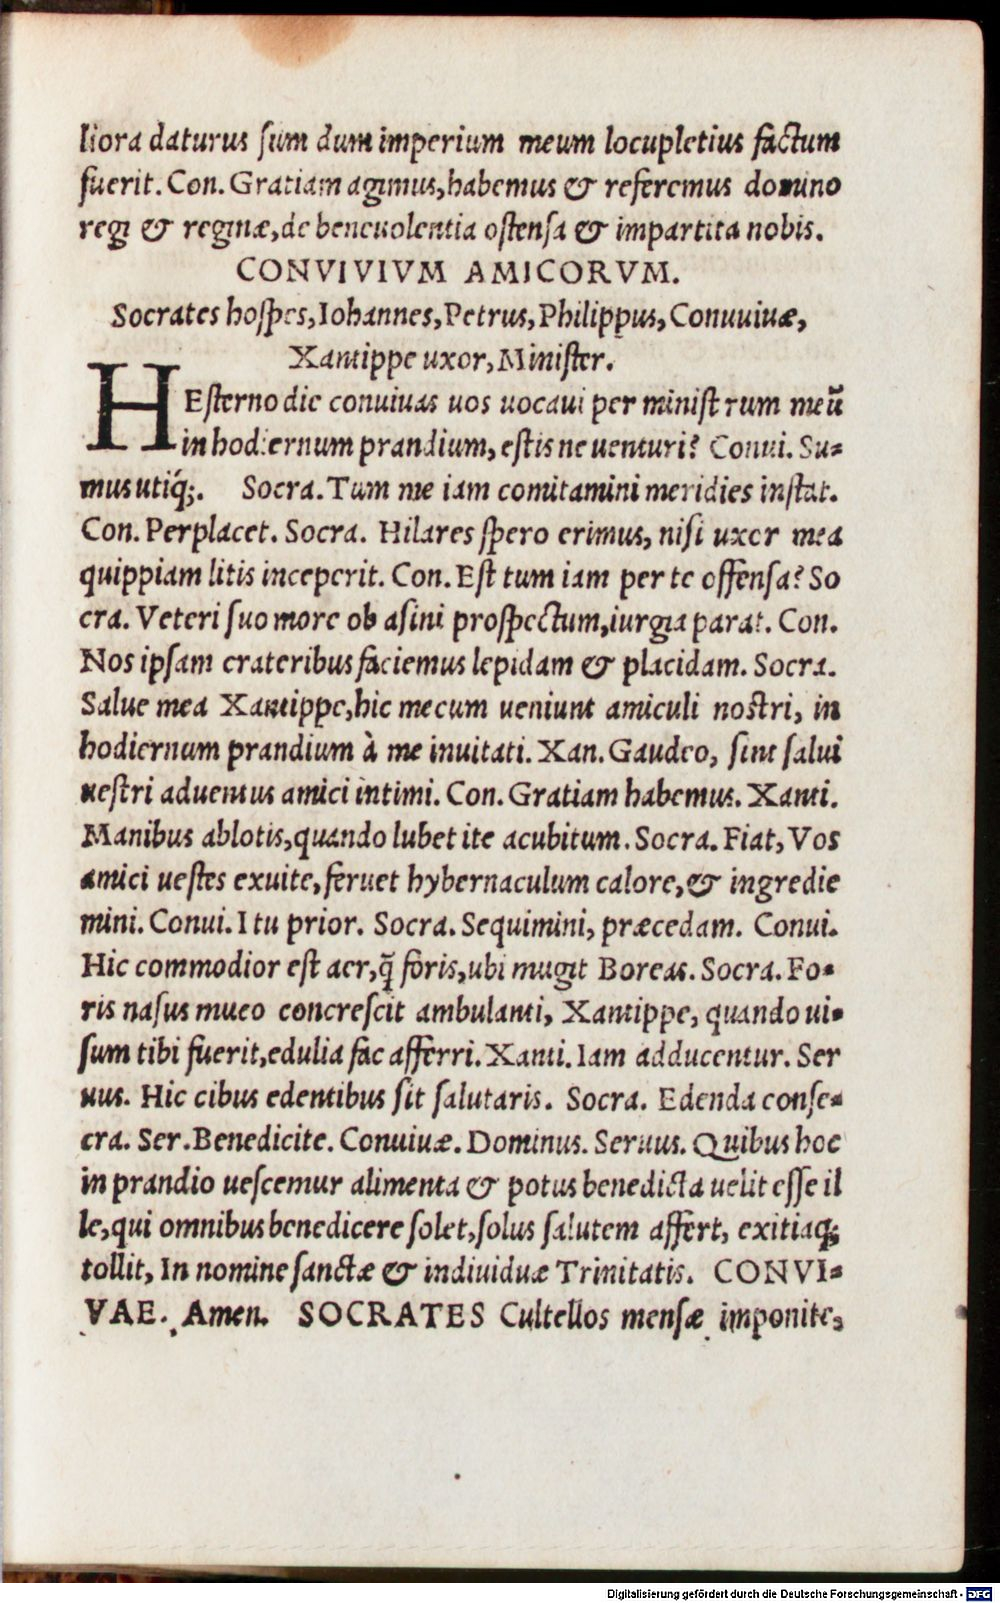 liora daturus sum dum imperium meum locupletius factum
fuerit. Con. Gratiam agimus, habemus & referemus domino
regi & reginæ, de beneuolentia ostensa & impartita nobis.
CONVIVIVM AMICORVM.
Socrates hospes, Iohannes, Petrus, Philippus, Conuiuæ,
Xantippe uxor, Minister.
HEsterno die conuiuas uos uocaui per ministrum meũ
in hodiernum prandium, estis ne uenturi? Conui. Su=
mus utiq́;. Socra. Tum me iam comitamini meridies instat.
Con. Perplacet. Socra. Hilares spero erimus, nisi uxor mea
quippiam litis inceperit. Con. Est tum iam per te offensa? So
cra. Veteri suo more ob asini prospectum, iurgia parat. Con.
Nos ipsam crateribus faciemus lepidam & placidam. Socra.
Salue mea Xantippe, hic mecum ueniunt amiculi nostri, in
hodiernum prandium à me inuitati. Xan. Gaudeo, sint salui
uestri aduentus amici intimi. Con. Gratiam habemus. Xanti.
Manibus ablotis, quando lubet ite acubitum. Socra. Fiat, Vos
amici uestes exuite, feruet hybernaculum calore, & ingredie
mini. Conui. I tu prior. Socra. Sequimini, præcedam. Conui.
Hic commodior est aer, q̃ foris, ubi mugit Boreas. Socra. Fo=
ris nasus muco concrescit ambulanti, Xantippe, quando ui=
sum tibi fuerit, edulia fac afferri. Xanti. Iam adducentur. Ser
uus. Hic cibus edentibus sit salutaris. Socra. Edenda conse=
cra. Ser. Benedicite. Conuiuæ. Dominus. Seruus. Quibus hoc
in prandio uescemur alimenta & potus benedicta uelit esse il
le, qui omnibus benedicere solet, solus salutem affert, exitiaq;
tollit, In nomine sanctæ & indiuiduæ Trinitatis. CONVI=
VAE. Amen. SOCRATES Cultellos mensæ imponite,
Digitalisierung gefördert durch die Deutsche Forschungsgemeinschaft - DFG